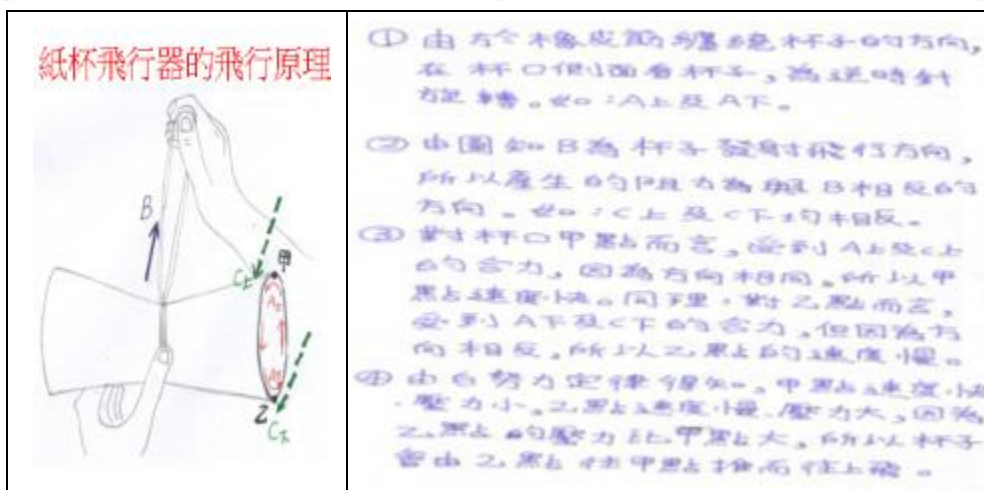 紙杯飛行器的飛行原理
B
C上
甲
A上
A下
乙
C下
① 由於橡皮筋纏繞杯子的方向,
在杯口側面看杯子,為逆時針
旋轉。如:A上及A下。
② 由圖知B為杯子發射飛行方向,
所以產生的阻力為與B相反的
方向。如:C上及C下均相反。
③ 對杯口甲點而言,受到A上及C上
的合力,因為方向相同,所以甲
點速度快。同理,對乙點而言,
受到A下及C下的合力,但因為方
向相反,所以乙點的速度慢。
④ 由白努力定律得知,甲點速度快
、壓力小,乙點速度慢、壓力大,因為
乙點的壓力比甲點大,所以杯子
會由乙點往甲點推而往上飛。